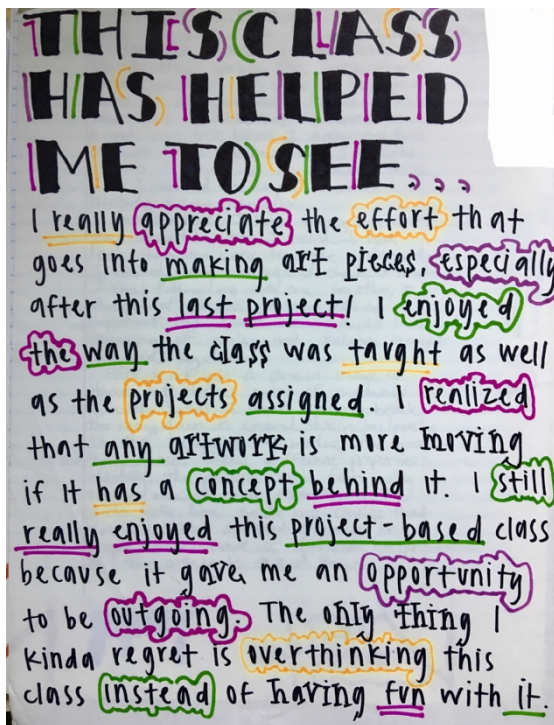 THIS CLASS
HAS HELPED
ME TO SEE...
I really appreciate the effort that
goes into making art pieces, especially
after this last project! I enjoyed
the way the class was taught as well
as the projects assigned. I realized
that any artwork is more moving
if it has a concept behind it. I still
really enjoyed this project-based class
because it gave me an opportunity
to be outgoing. The only thing I
kinda regret is overthinking this
class instead of having fun with it.